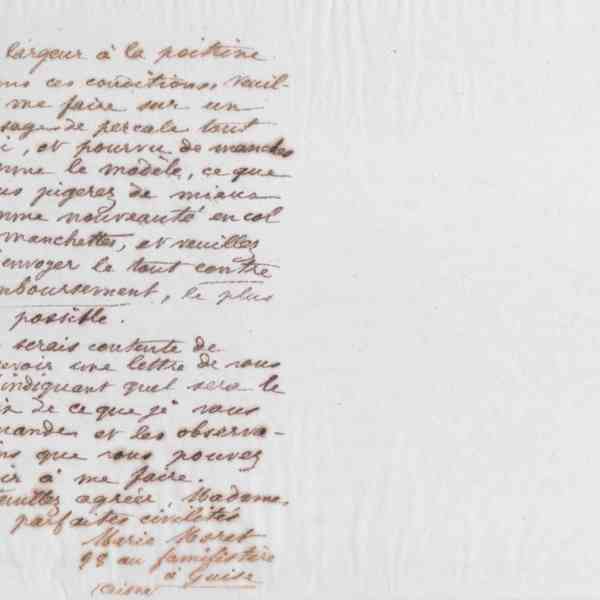 largeur à la poitrine
ns ces conditions, veuil-
me faire sur un
sage de percale tout
i, et pourvu de manches
mme le modèle, ce que
us pigerez de mieux
mme nouveauté en col
manchettes, et veuillez
envoyer le tout contre
mboursement, le plus
possible.
serais contente de
evoir une lettre de vous
indiquant quel sera le
ix de ce que je vous
mande et les observa-
ns que vous pouvez
ir à me faire.
euillez agréer, Madame,
parfaites civilités
Marie Moret
98 au familistère
à Guise
(Aisne